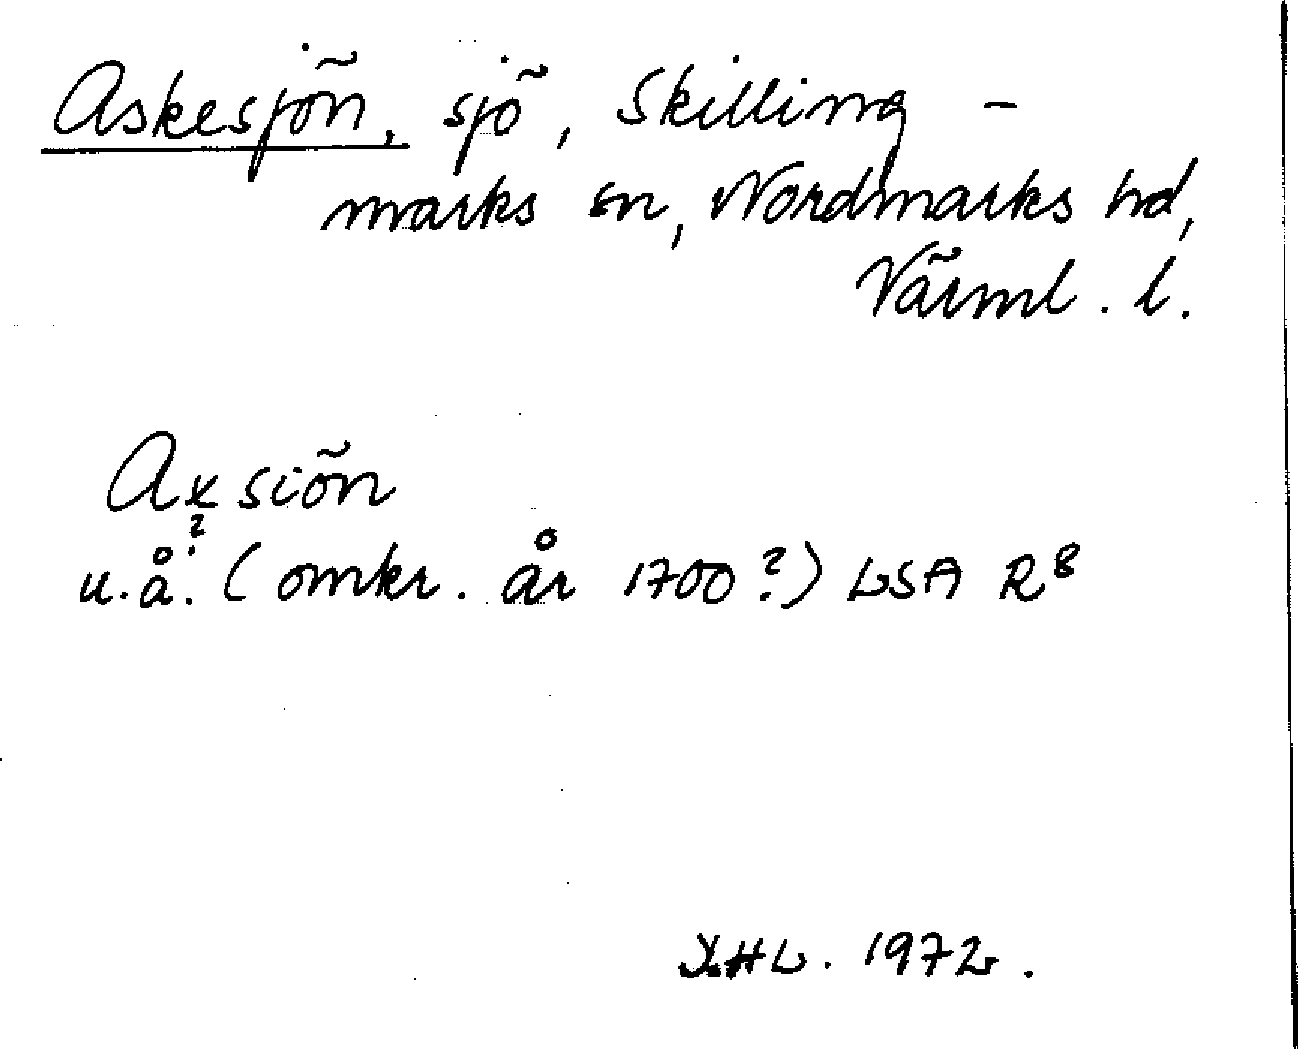 Askesjön, sjö, Skilling-
marks sn, Nordmarks hd,
Värml. l.
Axsiön
?
u.å. (omkr. år 1700?) LSA R8
1972.